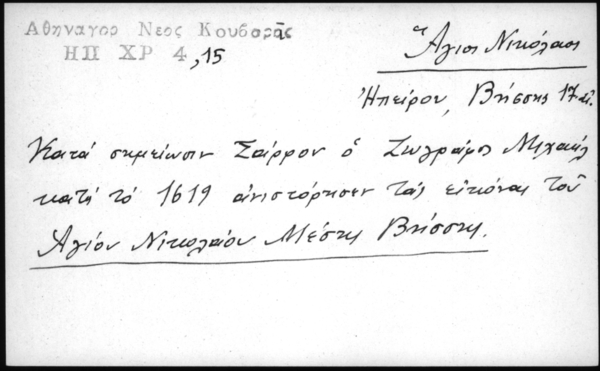 Αθηναγορ Νεος Κουβαρᾶς
ΗΠ ΧΡ 4,15
Ἅγιος Νικόλαος
Ἠπείρου, Βήσσης 17 αἰ.
Κατά σημείωσιν Σάρρου ὁ Ζωγράφος Μιχαήλ
κατά τό 1619 ἀνιστόρησεν τάς εἰκόνας τοῦ
Ἁγίου Νικολάου Μέσης Βήσσης.